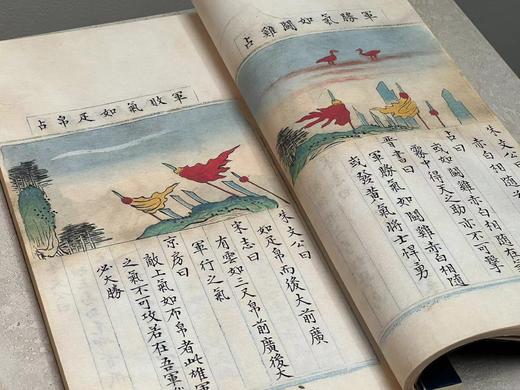 軍勝氣如鬬雞占
朱文公曰
赤白相隨在
占曰
或如鬬雞赤白相隨
霧中得天之助亦不可擊
晉書曰
軍勝氣如鬬雞赤白相隨
或發黃氣將士悍勇
軍敗氣如疋帛占
朱文公曰
如疋帛而後大前廣
朱志曰
有雲如三疋帛前廣後大
軍行之氣
京房曰
敵上氣如布帛者此雄軍
之氣不可攻若在吾軍
必大勝